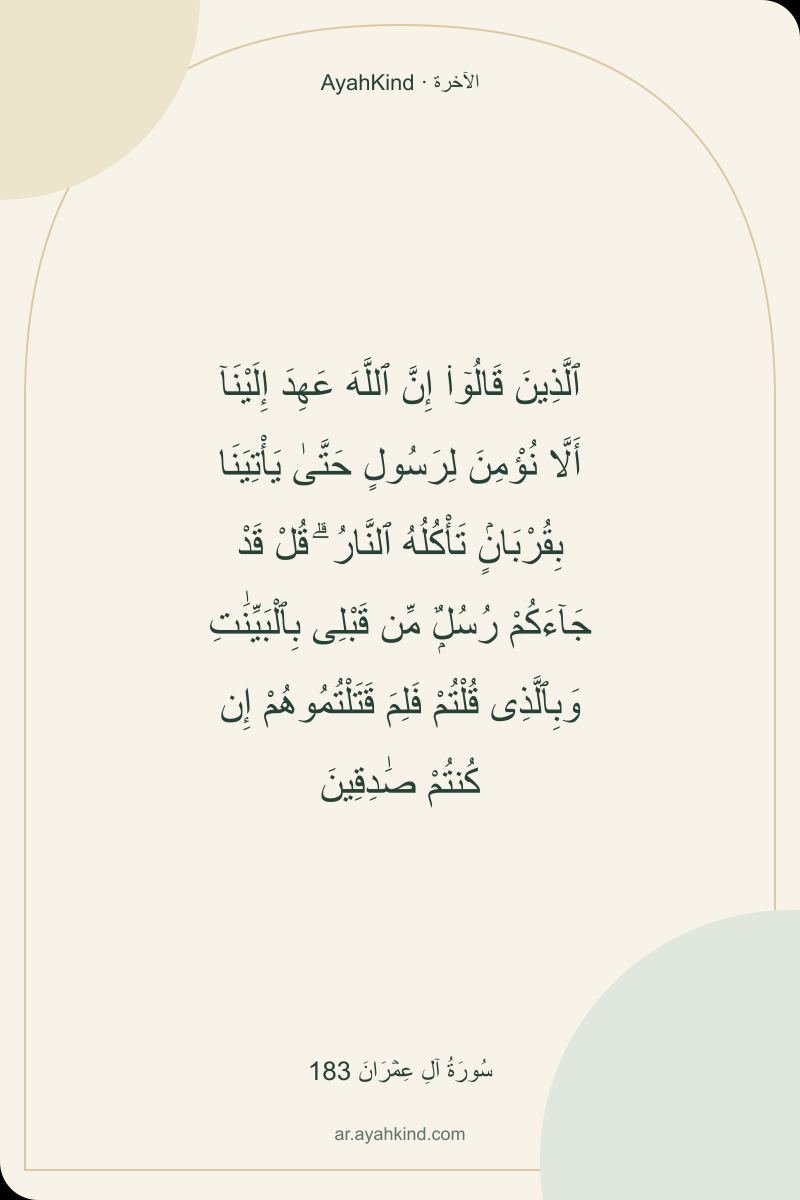 AyahKind · الآخرة
ٱلَّذِينَ قَالُوٓا۟ إِنَّ ٱللَّهَ عَهِدَ إِلَيْنَآ
أَلَّا نُؤْمِنَ لِرَسُولٍ حَتَّىٰ يَأْتِيَنَا
بِقُرْبَانٍۢ تَأْكُلُهُ ٱلنَّارُ ۗ قُلْ قَدْ
جَآءَكُمْ رُسُلٌۭ مِّن قَبْلِى بِٱلْبَيِّنَٰتِ
وَبِٱلَّذِى قُلْتُمْ فَلِمَ قَتَلْتُمُوهُمْ إِن
كُنتُمْ صَٰدِقِينَ
سُورَةُ آلِ عِمۡرَانَ 183
ar.ayahkind.com